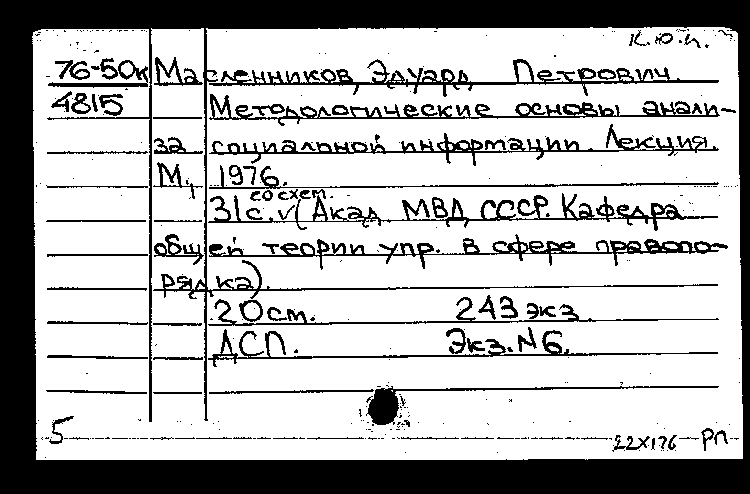 К.Ю.И.
76-50к Масленников, Эдуард Петрович.
4815 Методологические основы анали-
за социальной информации. Лекция.
М., 1976.
со схем.
31с. √ (Акад. МВД СССР. Кафедра
общей теории упр. в сфере правопо-
рядка).
20см. 243 экз.
ДСП. Экз. N6.
5
22X176 РП